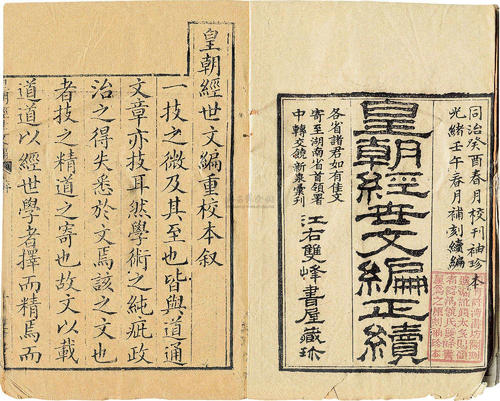 同治癸酉春月校刊袖珍本
光緒壬午春月補刻續編
皇朝經世文編正續
江右雙峰書屋藏珍
各省諸君如有佳文
寄至湖南省首領署
中轉交饒新泉彙刊
皇朝經世文編重校本叙
一技之微及其至也皆與道通
文章亦技耳然學術之純疵政
治之得失悉於文焉該之文也
者技之精道之寄也故文以載
道道以經世學者擇而精焉而